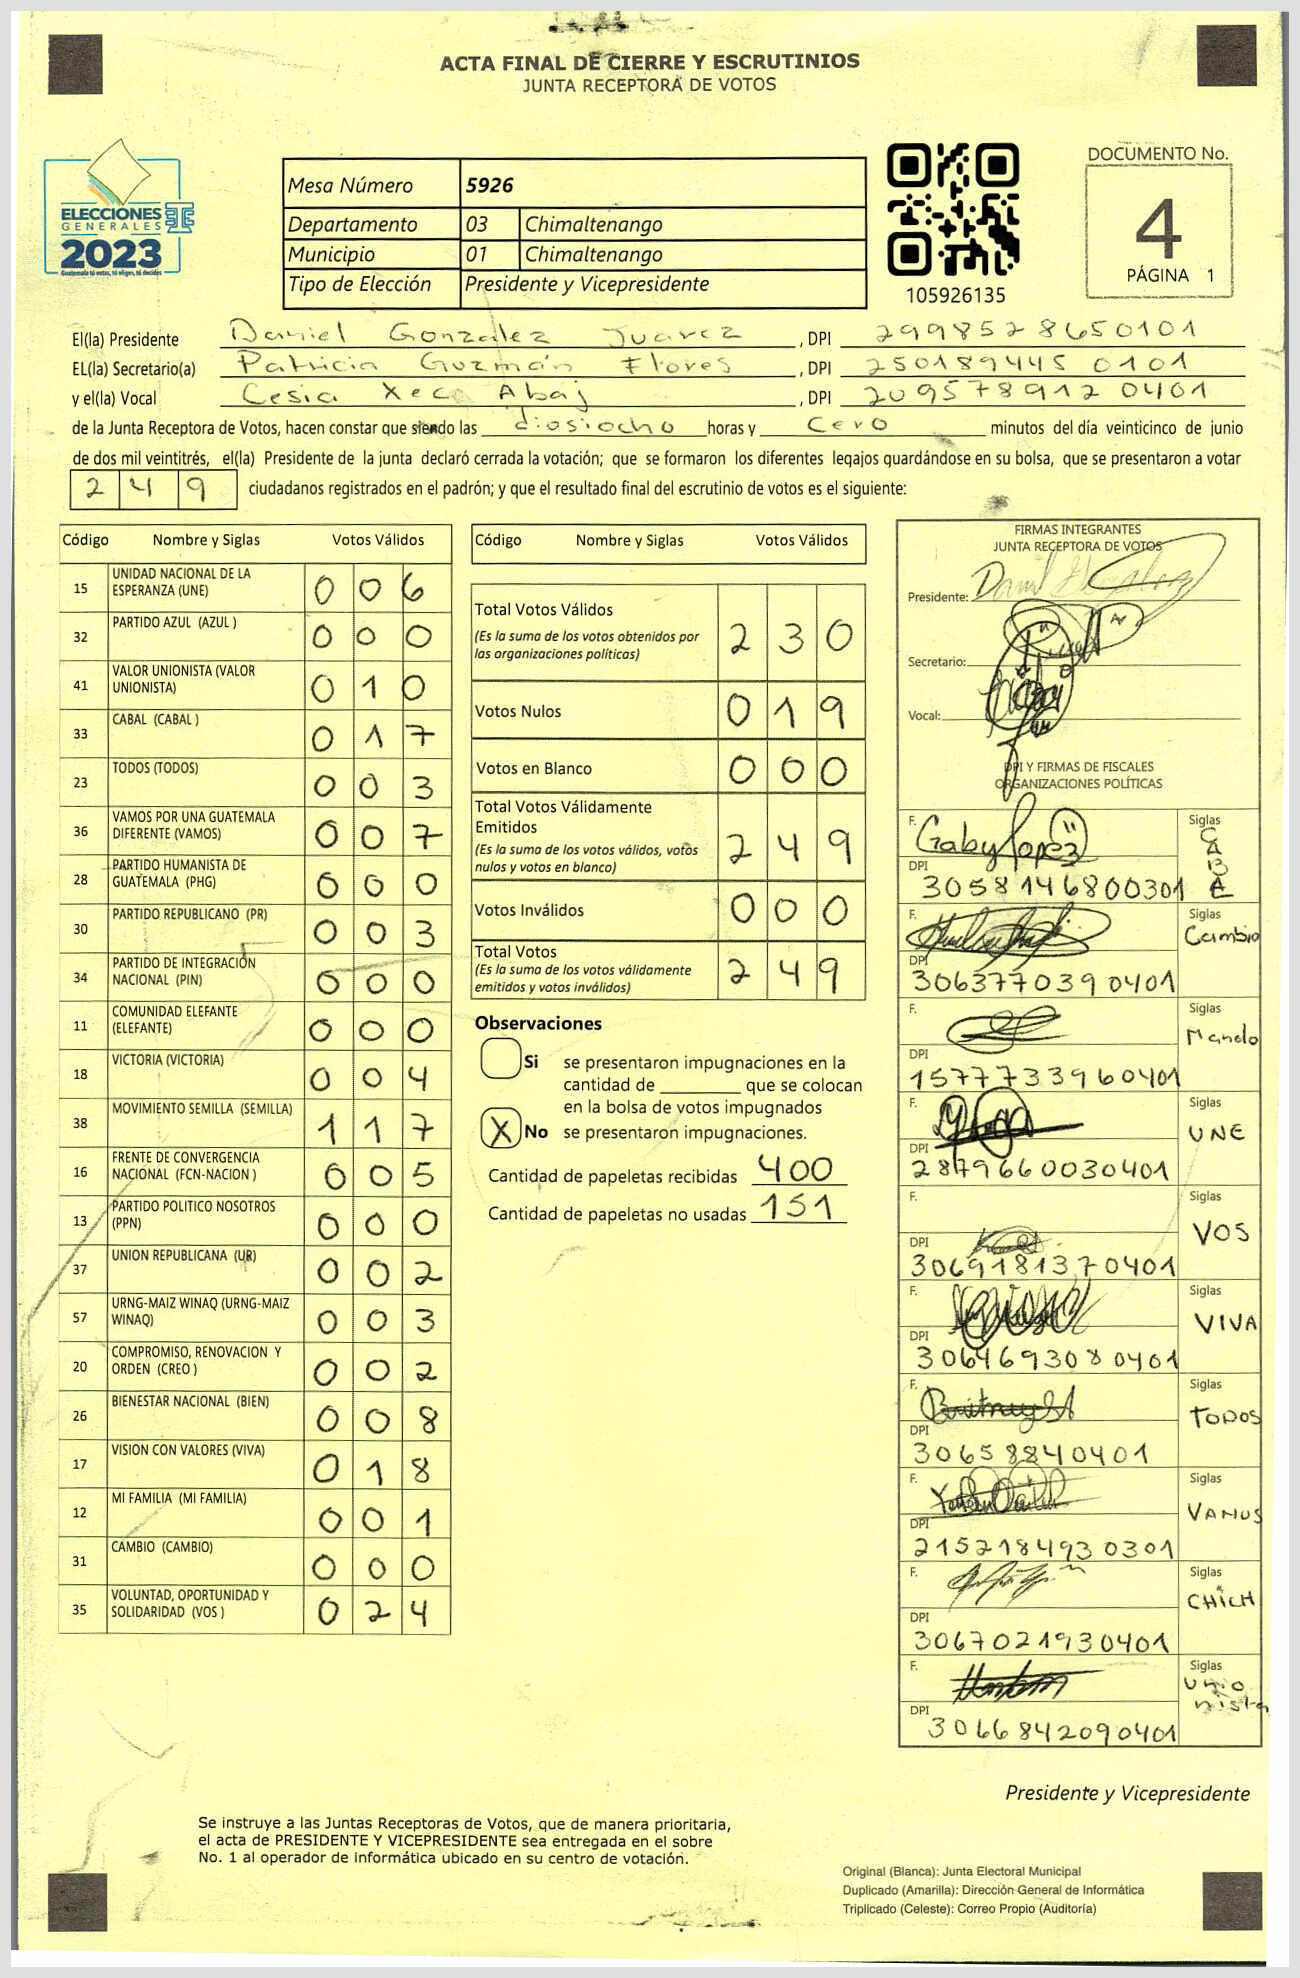 ACTA FINAL DE CIERRE Y ESCRUTINIOS
JUNTA RECEPTORA DE VOTOS
ELECCIONES
GENERALES
2023
Guatemala tú votas, tú eliges, tú decides
Mesa Número 5926
Departamento 03 Chimaltenango
Municipio 01 Chimaltenango
Tipo de Elección Presidente y Vicepresidente
105926135
DOCUMENTO No.
4
PÁGINA 1
El(la) Presidente Daniel Gonzalez Juarez, DPI 2998528650101
EL(la) Secretario(a) Patricia Guzmán Flores, DPI 250189445 0101
y el(la) Vocal Cesia Xeco Abaj, DPI 209578912 0401
de la Junta Receptora de Votos, hacen constar que siendo las diosiocho horas y cero minutos del día veinticinco de junio
de dos mil veintitrés, el(la) Presidente de la junta declaró cerrada la votación; que se formaron los diferentes legajos guardándose en su bolsa, que se presentaron a votar
249 ciudadanos registrados en el padrón; y que el resultado final del escrutinio de votos es el siguiente:
Código Nombre y Siglas Votos Válidos
15 UNIDAD NACIONAL DE LA ESPERANZA (UNE) 006
32 PARTIDO AZUL (AZUL ) 000
41 VALOR UNIONISTA (VALOR UNIONISTA) 010
33 CABAL (CABAL ) 017
23 TODOS (TODOS) 003
36 VAMOS POR UNA GUATEMALA DIFERENTE (VAMOS) 007
28 PARTIDO HUMANISTA DE GUATEMALA (PHG) 000
30 PARTIDO REPUBLICANO (PR) 003
34 PARTIDO DE INTEGRACIÓN NACIONAL (PIN) 000
11 COMUNIDAD ELEFANTE (ELEFANTE) 000
18 VICTORIA (VICTORIA) 004
38 MOVIMIENTO SEMILLA (SEMILLA) 117
16 FRENTE DE CONVERGENCIA NACIONAL (FCN-NACION ) 005
13 PARTIDO POLITICO NOSOTROS (PPN) 000
37 UNION REPUBLICANA (UR) 002
57 URNG-MAIZ WINAQ (URNG-MAIZ WINAQ) 003
20 COMPROMISO, RENOVACION Y ORDEN (CREO ) 002
26 BIENESTAR NACIONAL (BIEN) 008
17 VISION CON VALORES (VIVA) 018
12 MI FAMILIA (MI FAMILIA) 001
31 CAMBIO (CAMBIO) 000
35 VOLUNTAD, OPORTUNIDAD Y SOLIDARIDAD (VOS ) 024
Código Nombre y Siglas Votos Válidos
Total Votos Válidos 230
(Es la suma de los votos obtenidos por
las organizaciones políticas)
Votos Nulos 019
Votos en Blanco 000
Total Votos Válidamente
Emitidos 249
(Es la suma de los votos válidos, votos
nulos y votos en blanco)
Votos Inválidos 000
Total Votos 249
(Es la suma de los votos válidamente
emitidos y votos inválidos)
Observaciones
Si se presentaron impugnaciones en la
cantidad de ________ que se colocan
en la bolsa de votos impugnados
X No se presentaron impugnaciones.
Cantidad de papeletas recibidas 400
Cantidad de papeletas no usadas 151
FIRMAS INTEGRANTES
JUNTA RECEPTORA DE VOTOS
Presidente:
Secretario:
Vocal:
DPI Y FIRMAS DE FISCALES
ORGANIZACIONES POLÍTICAS
F. Gaby Lopez Siglas
DPI 3058146800301
F. Siglas Cambio
DPI 306377039 0401
F. Siglas Mando
DPI 1577733960401
F. Siglas UNE
DPI 2879660030401
F. Siglas VOS
DPI 3069181370401
F. Siglas VIVA
DPI 306469308 0401
F. Siglas TODOS
DPI 30658840401
F. Siglas VAMOS
DPI 215218493 0301
F. Siglas CHICH
DPI 3067021930401
F. Siglas Unio
nista
DPI 3066842090401
Presidente y Vicepresidente
Se instruye a las Juntas Receptoras de Votos, que de manera prioritaria,
el acta de PRESIDENTE Y VICEPRESIDENTE sea entregada en el sobre
No. 1 al operador de informática ubicado en su centro de votación.
Original (Blanca): Junta Electoral Municipal
Duplicado (Amarilla): Dirección General de Informática
Triplicado (Celeste): Correo Propio (Auditoría)